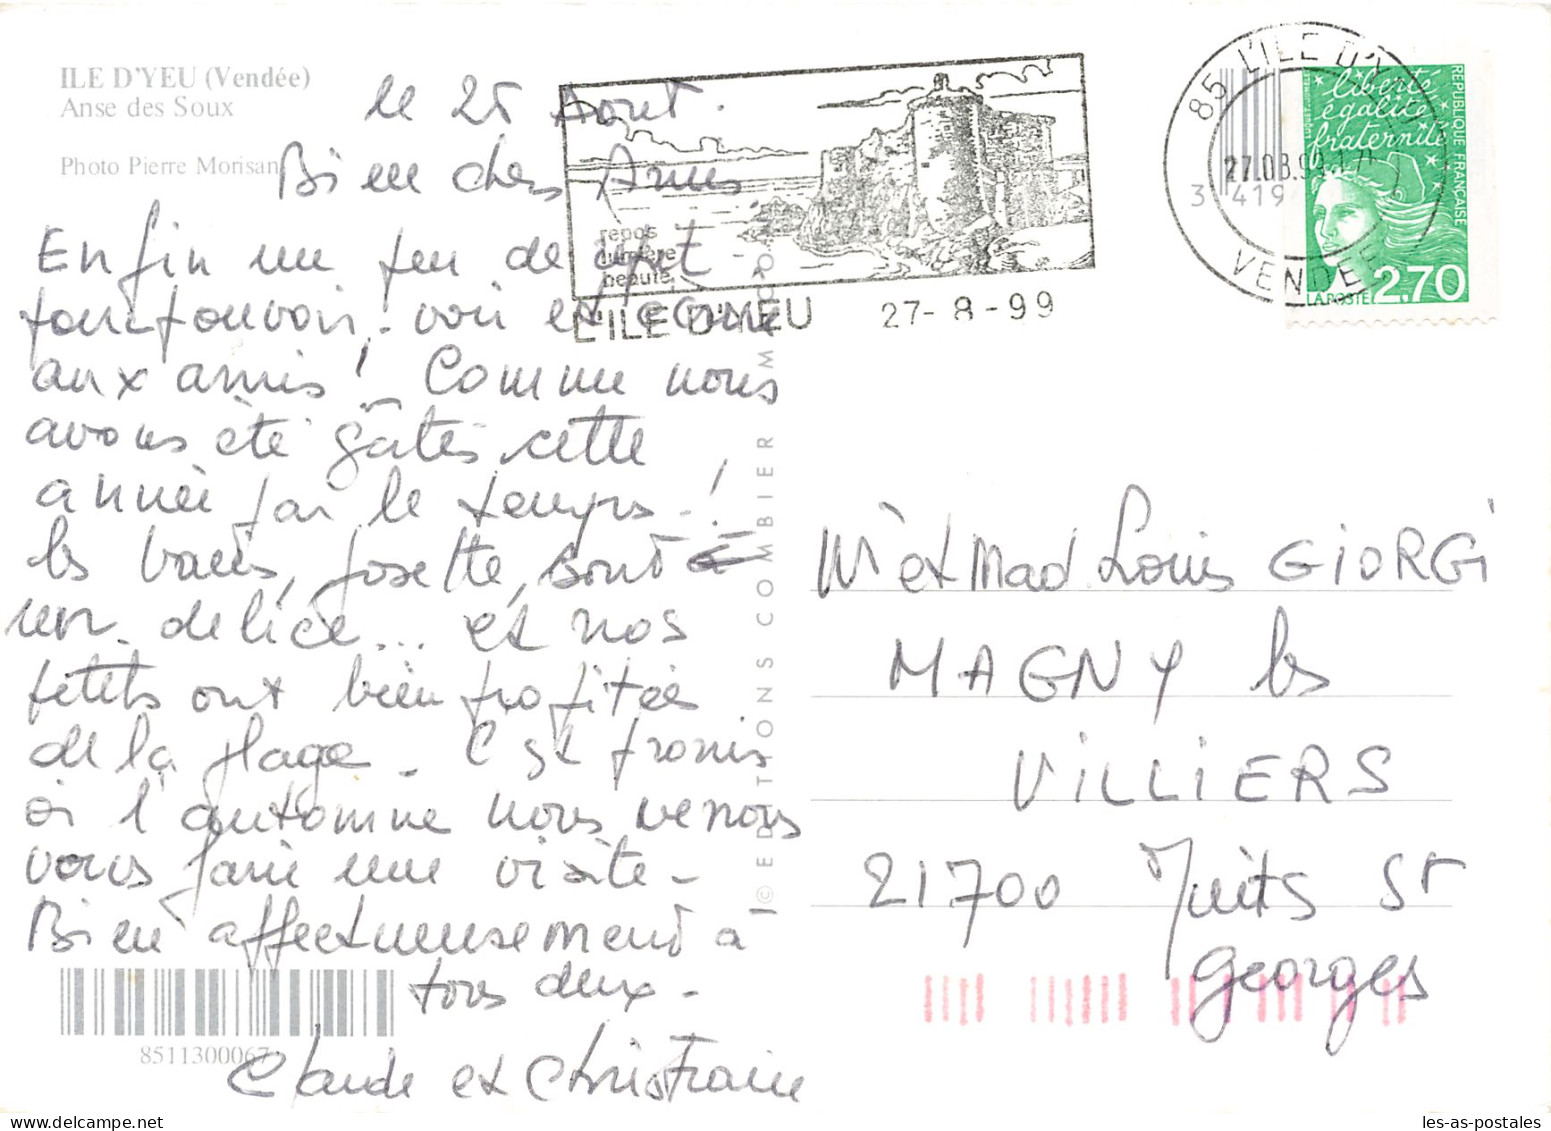 ILE D'YEU (Vendée)
Anse des Soux
Photo Pierre Morisan
le 25 Aout.
Bien chers Amis
Enfin un peu de
pour pouvoir voir et écrire
aux amis! Comme nous
avons été gâtés cette
année par le temps-!
les bains, Josette, sont
un délice... et nos
petits ont bien profités
de la plage - C'est promis
si l'automne nous venons
vous faire une visite -
Bien affectueusement à
tous deux -
Claude et Christiane
8511300067
repos
lumière
beauté
L'ILE D'YEU 27-8-99
85 L'ILE D'YEU
27.08.99
VENDEE
3 419
liberté
égalité
fraternité
REPUBLIQUE FRANÇAISE
LA POSTE 2,70
© EDITIONS COMBIER MACON
Mr et Mad Louis GIORGI
MAGNY les
VILLIERS
21700 Nuits St
Georges
les-as-postales